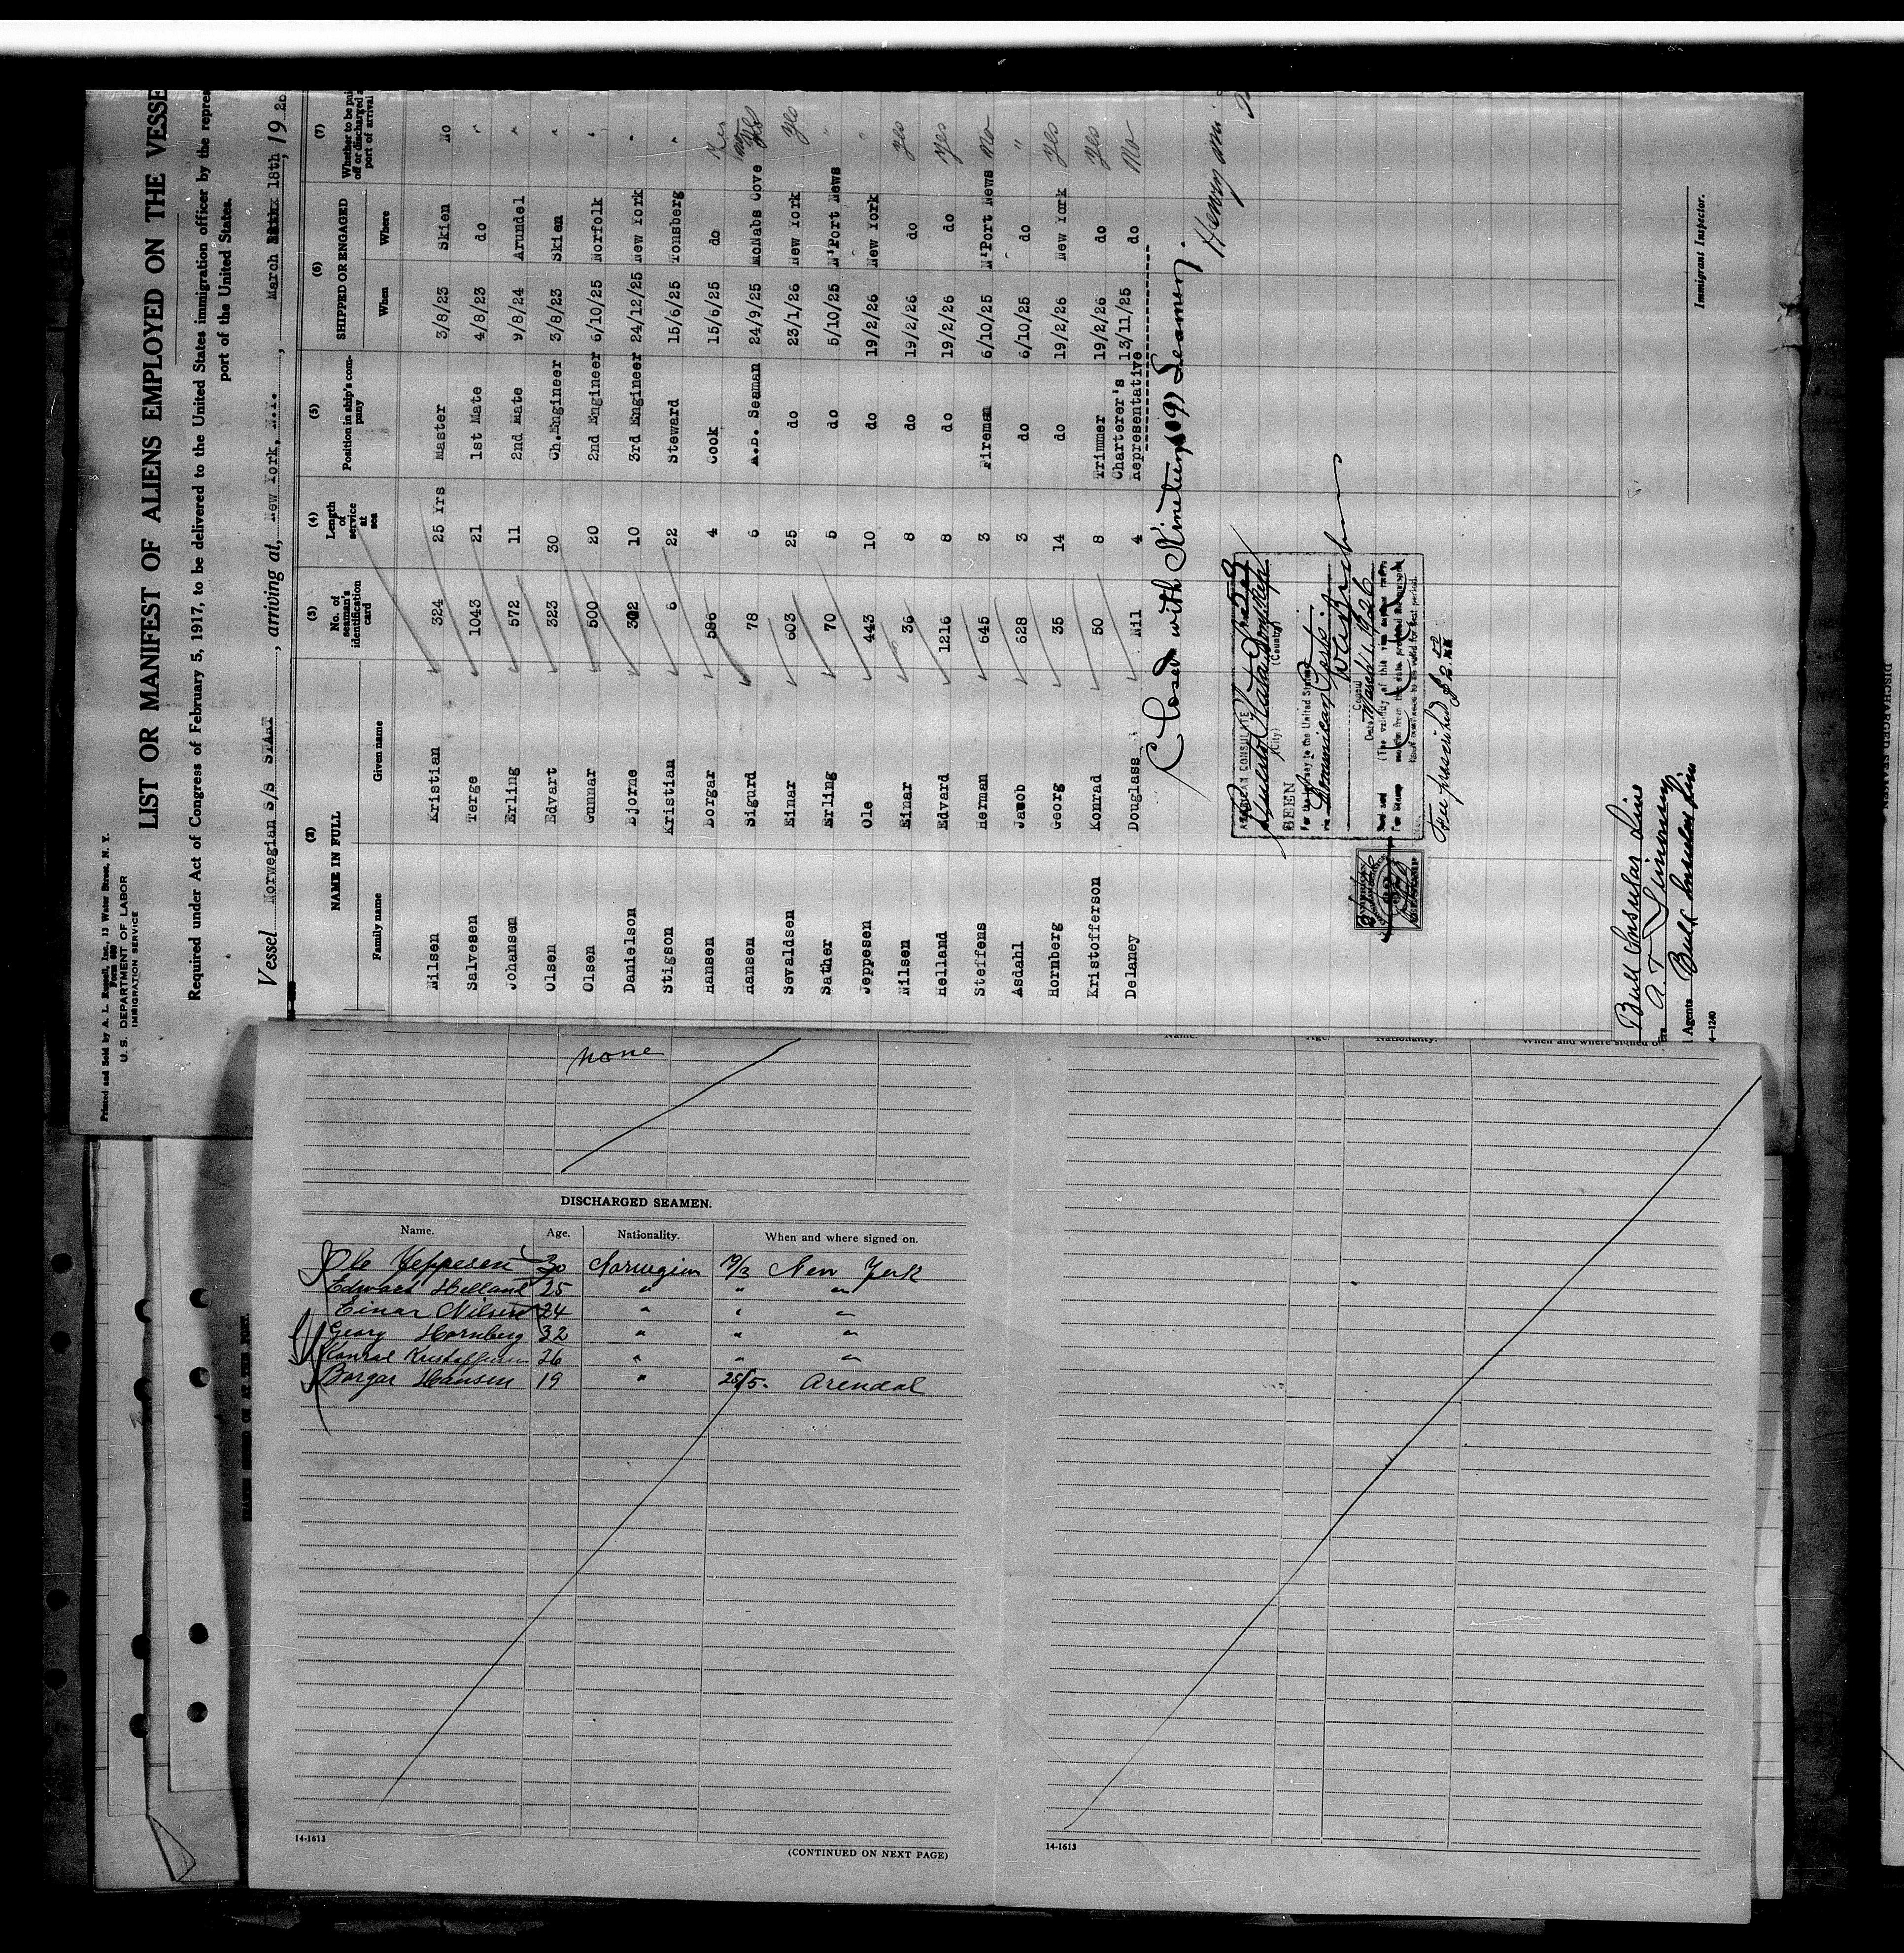 Printed and Sold by A. L. Russell, Inc., 13 Water Street, N. Y.
Form 680
U. S. DEPARTMENT OF LABOR
IMMIGRATION SERVICE
LIST OR MANIFEST OF ALIENS EMPLOYED ON THE VESSE
Required under Act of Congress of February 5, 1917, to be delivered to the United States immigration officer by the repres
port of the United States.
Vessel Norwegian S/S START, arriving at, New York, N.Y., March 18th, 19 26
(2) (3) (4) (5) (6) (7)
NAME IN FULL No. of seaman's identification card Length of service at sea Position in ship's company SHIPPED OR ENGAGED Whether to be paid off or discharged at port of arrival
Family name Given name When Where
Nilsen Kristian 324 25 Yrs Master 3/8/23 Skien No
Salvesen Terge 1043 21 1st Mate 4/8/23 do "
Johansen Erling 572 11 2nd Mate 9/8/24 Arundel "
Olsen Edvart 323 30 Ch.Engineer 3/8/23 Skien "
Olsen Gunnar 500 20 2nd Engineer 6/10/25 Norfolk "
Danielson Bjorne 302 10 3rd Engineer 24/12/25 New York "
Stigson Kristian 6 22 Steward 15/6/25 Tonsberg "
Hansen Borgar 586 4 Cook 15/6/25 do Yes
Hansen Sigurd 78 6 A.B. Seaman 24/9/25 McNabs Cove Yes
Sevaldsen Einar 603 25 do 23/1/26 New York Yes
Sather Erling 70 5 do 5/10/25 N'Port News "
Jeppesen Ole 443 10 do 19/2/26 New York "
Nilsen Einar 36 8 do 19/2/26 do Yes
Helland Edvard 1216 8 do 19/2/26 do Yes
Steffens Herman 645 3 Fireman 6/10/25 N'Port News No
Asdahl Jacob 628 3 do 6/10/25 do "
Hornberg Georg 35 14 do 19/2/26 New York Yes
Kristofferson Konrad 50 8 Trimmer 19/2/26 do Yes
Delaney Douglass Nil 4 Charterer's Representative 13/11/25 do No
Closed with Nineteen (19) Seamen.
Henry
AMERICAN CONSULATE
Puerto Plata
(City) (Country)
SEEN
For the journey to the United States
via Dominican Ports
Consul
Date March 1, 1926
Fee prescribed $2.00
Bull Insular Line
Agents Bull Insular Line
Immigrant Inspector.
4-1240
none
DISCHARGED SEAMEN.
Name. Age. Nationality. When and where signed on.
Ole Jeppesen 30 Norwegian 19/2 New York
Edward Helland 25 " " "
Einar Nilsen 24 " " "
Georg Hornberg 32 " " "
Konrad Kristoffersen 26 " " "
Borgar Hansen 19 " 25/5. Arendal
14-1613
(CONTINUED ON NEXT PAGE)
Name. Age. Nationality. When and where signed o
14-1613